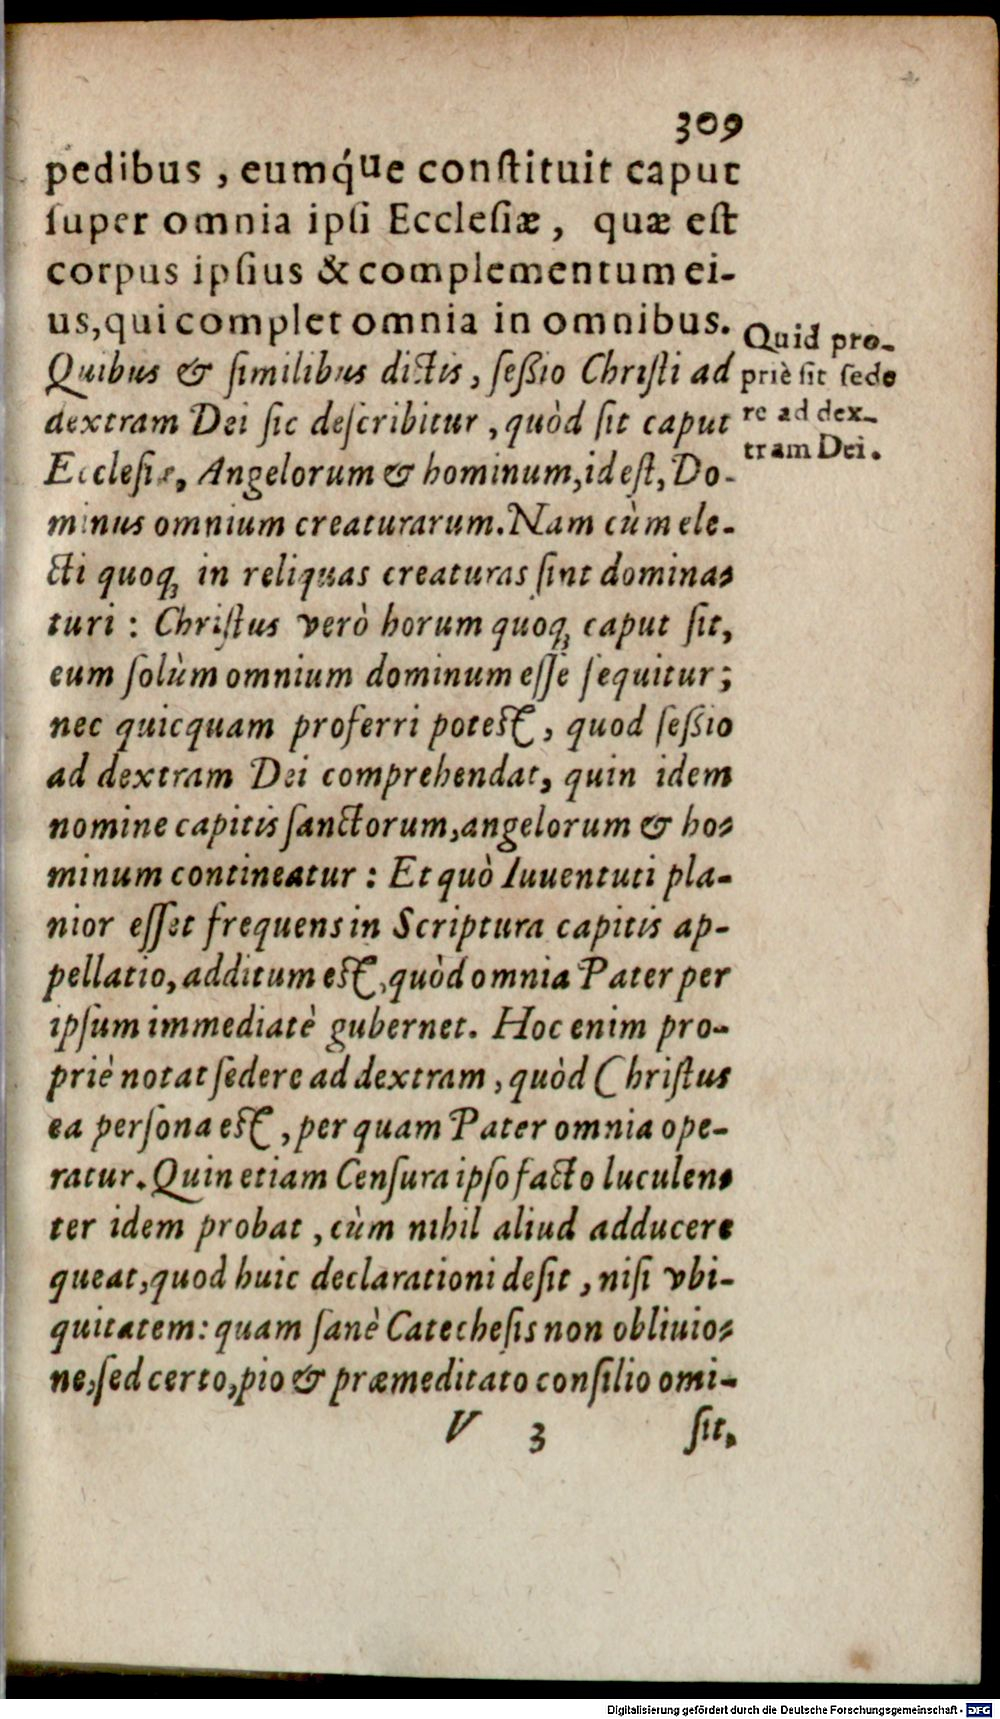 309
pedibus, eumq́ue conſtituit caput
ſuper omnia ipſi Eccleſiæ, quæ eſt
corpus ipſius & complementum ei-
us, qui complet omnia in omnibus.
Quid pro-
priè ſit ſede
re ad dex-
tram Dei.
Quibus & ſimilibus dictis, ſeßio Chriſti ad
dextram Dei ſic deſcribitur, quòd ſit caput
Eccleſiæ, Angelorum & hominum, id eſt, Do-
minus omnium creaturarum. Nam cùm ele-
cti quoq; in reliquas creaturas ſint domina-
turi: Chriſtus verò horum quoq; caput ſit,
eum ſolùm omnium dominum eſſe ſequitur;
nec quicquam proferri poteſt, quod ſeßio
ad dextram Dei comprehendat, quin idem
nomine capitis ſanctorum, angelorum & ho-
minum contineatur: Et quò Iuuentuti pla-
nior eſſet frequens in Scriptura capitis ap-
pellatio, additum eſt, quòd omnia Pater per
ipſum immediatè gubernet. Hoc enim pro-
priè notat ſedere ad dextram, quòd Chriſtus
ea perſona eſt, per quam Pater omnia ope-
ratur. Quin etiam Cenſura ipſo facto luculen-
ter idem probat, cùm nihil aliud adducere
queat, quod huic declarationi deſit, niſi vbi-
quitatem: quam ſanè Catecheſis non obliuio-
ne, ſed certo, pio & præmeditato conſilio omi-
V 3 ſit,
Digitalisierung gefördert durch die Deutsche Forschungsgemeinschaft - DFG